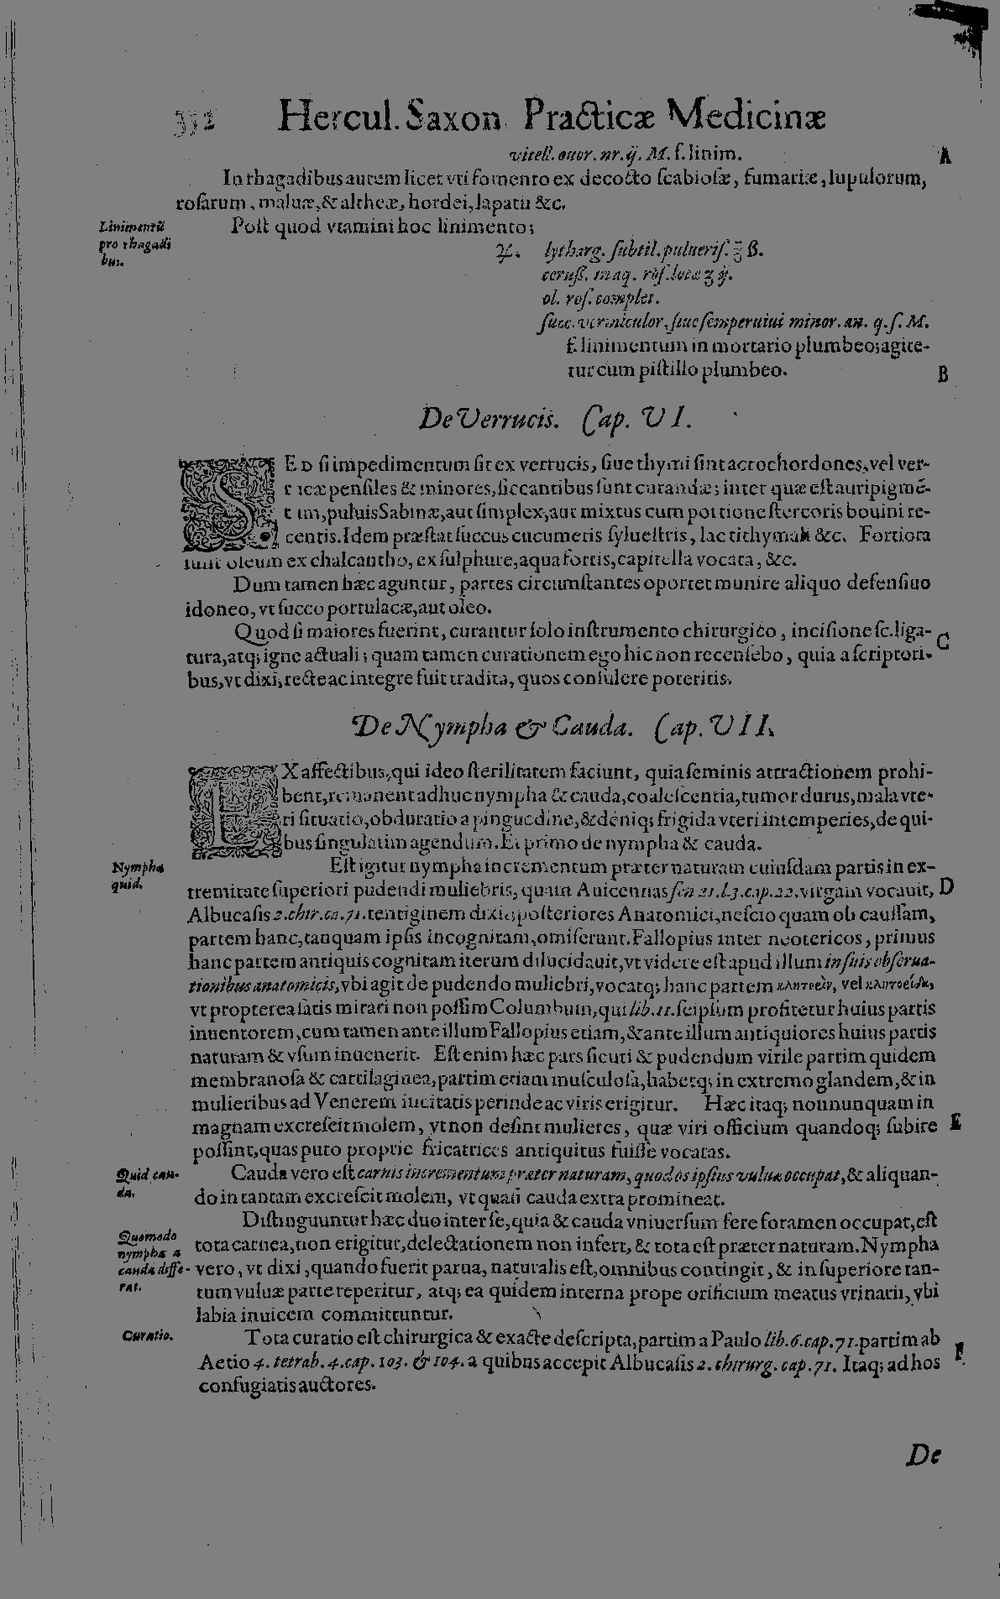 332 Hercul. Saxon. Practicæ Medicinæ
vitell. ouor. nr. ij. M. f. linim. A
In rhagadibus autem licet vti fomento ex decocto ſcabioſæ, fumariæ, lupulorum,
roſarum, maluæ, & altheæ, hordei, lapatii &c.
Linimentũ
pro rhagadi
bus.
Poſt quod vtamini hoc linimento;
♃. lytharg. ſubtil. pulueriſ. ʒ̄ ß.
ceruſſ. maq. roſ. lotæ ʒ ij.
ol. roſ. complet.
ſucc. vermicular. ſiue ſemperuiui minor. an. q. ſ. M.
f. linimentum in mortario plumbeo; agite-
tur cum piſtillo plumbeo. B
De Verrucis. Cap. VI.
SED ſi impedimentum ſit ex verrucis, ſiue thymi ſint acrochordones, vel ver-
rucæ penſiles & minores, ſiccantibus ſunt curandæ; inter quæ eſt auripigmẽ-
tum, puluis Sabinæ, aut ſimplex, aut mixtus cum portione ſtercoris bouini re-
centis. Idem præſtat ſuccus cucumeris ſylueſtris, lac tithymali &c. Fortiora
ſunt oleum ex chalcantho, ex ſulphure, aqua fortis, capitella vocata, &c.
Dum tamen hæc aguntur, partes circumſtantes oportet munire aliquo defenſiuo
idoneo, vt ſucco portulacæ, aut oleo.
Quod ſi maiores fuerint, curantur ſolo inſtrumento chirurgico, inciſione ſc. liga- C
tura, atq; igne actuali; quam tamen curationem ego hic non recenſebo, quia a ſcriptori-
bus, vt dixi, recte ac integre fuit tradita, quos conſulere poteritis.
De Nympha & Cauda. Cap. VII.
EX affectibus, qui ideo ſterilitatem faciunt, quia ſeminis attractionem prohi-
bent, remanent adhuc nympha & cauda, coaleſcentia, tumor durus, mala vte-
ri ſituatio, obduratio a pinguedine, & deniq; frigida vteri intemperies, de qui-
bus ſingulatim agendum. Et primo de nympha & cauda.
Nympha
quid.
Eſt igitur nympha incrementum præter naturam cuiuſdam partis in ex-
tremitate ſuperiori pudendi muliebris, quam Auicennas ſen 21. l. 3. cap. 22. virgam vocauit, D
Albucaſis 2. chir. ca. 71. tentiginem dixit; poſteriores Anatomici, neſcio quam ob cauſſam,
partem hanc, tanquam ipſis incognitam, omiſerunt. Fallopius inter neotericos, primus
hanc partem antiquis cognitam iterum dilucidauit, vt videre eſt apud illum in ſuis obſerua-
tionibus anatomicis, vbi agit de pudendo muliebri, vocatq; hanc partem κλητοεὶν, vel κλητοείδα,
vt propterea ſatis mirari non poſſim Columbum, qui lib. 11. ſeipſum profitetur huius partis
inuentorem, cum tamen ante illum Fallopius etiam, & ante illum antiquiores huius partis
naturam & vſum inuenerit. Eſt enim hæc pars ſicuti & pudendum virile partim quidem
membranoſa & cartilaginea, partim etiam muſculoſa, habetq; in extremo glandem, & in
mulieribus ad Venerem incitatis perinde ac viris erigitur. Hæc itaq; nonnunquam in
magnam excreſcit molem, vt non deſint mulieres, quæ viri officium quandoq; ſubire E
poſſint, quas puto proprie fricatrices antiquitus fuiſſe vocatas.
Quid cau-
da.
Cauda vero eſt carnis incrementum præter naturam, quod os ipſius vuluæ occupat, & aliquan-
do in tantam excreſcit molem, vt quaſi cauda extra promineat.
Quomodo
nympha a
cauda diffe-
rat.
Diſtinguuntur hæc duo inter ſe, quia & cauda vniuerſum fere foramen occupat, eſt
tota carnea, non erigitur, delectationem non infert, & tota eſt præter naturam. Nympha
vero, vt dixi, quando fuerit parua, naturalis eſt, omnibus contingit, & in ſuperiore tan-
tum vuluæ parte reperitur, atq; ea quidem interna prope orificium meatus vrinarii, vbi
labia inuicem committuntur.
Curatio.
Tota curatio eſt chirurgica & exacte deſcripta, partim a Paulo lib. 6. cap. 71. partim ab
Aetio 4. tetrab. 4. cap. 103. & 104. a quibus accepit Albucaſis 2. chirurg. cap. 71. Itaq; ad hos F
confugiatis auctores.
De